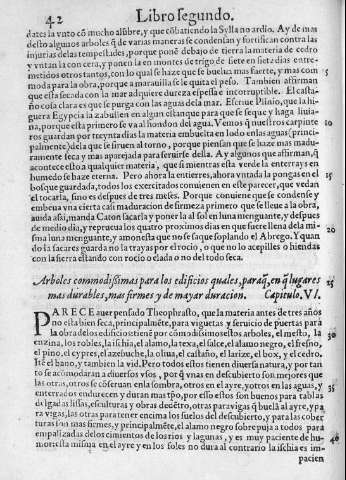 42 Libro segundo.
dates la vnto cō mucho alūbre, y que cōbatiendo la Sylla no ardio. Ay de mas
desto algunos arboles q̄ de varias maneras se condensan y fortifican contra las
injurias de las tempestades, porque ponē debaxo de tierra la materia de cedro
y vntan la con cera, y ponen la en montes de trigo de siete en siete dias entre-
metidos otros tantos, con lo qual se haze que se buelua mas fuerte, y mas com
moda para la obra, porque a marauilla se le quita el peso. Tambien affirman
que esta secada con la mar adquiere dureza espessa e incorruptible. El casta-
ño cosa clara es que se purga con las aguas dela mar. Escriue Plinio, que la hi-
guera Egypcia la zabullen en algun estanque para que se seque y haga liuia-
na, porque esta primero se va al hondon del agua. Vemos q̄ nuestros carpinte
ros guardan por treynta dias la materia embuelta en lodo enlas aguas (princi-
palmente) dela que se siruen al torno, porque piensan que se haze mas madu-
ramente seca y mas aparejada para seruirse della. Ay algunos que affirman, q̄
acontece esto a qualquier materia, que si mientras esta verde la enterrays en
humedo se haze eterna. Pero ahora la entierres, ahora vntada la pongas en el
bosque guardada, todos los exercitados conuienen en este parecer, que vedan
el tocarla, sino es despues de tres meses. Porque conuiene que se condense y
embeua vna cierta casi maduracion de firmeza primero que se llleue a la obra,
auida assi, manda Caton sacarla y poner la al sol en luna menguante, y despues
de medio dia, y reprueua los quatro proximos dias en que fuere llena dela mis
ma luna menguante, y amonesta que no se saque soplando el Abrego. Y quan
do la sacares guarda no la trayas por el rocio, o que no lo acepilles o hiendas
con la sierra estando con rocio o elada, o no del todo seca.
Arboles commodissimas para los edificios quales, paraq̄, en q̄ lugares
mas durables, mas firmes y de mayar duracion. Capitulo. VI.
PARECE auer pensado Theophrasto, que la materia antes de tres años
no esta bien seca, principalmēte, para viguetas y seruicio de puertas para
la obra delos edificios tiene por cōmodissimos estos arboles, el mesto, la
enzina, los robles, la ischia, el alamo, la texa, el salce, el alauno negro, el fresno,
el pino, el cypres, el azebuche, la oliua, el castaño, el larize, el box, y el cedro.
Itē el bano, y tambien la vid. Pero todos estos tienen diuersa natura, y por tan
to se acomodaran a diuersos vsos, por q̄ vnos en descubierto son mejores que
las otras, otros se cōseruan enla sombra, otros en el ayre, yotros en las aguas, y
enterrados endurecen y duran mas tpō, por esso estos son buenos para tablas
delgadas lissas, esculturas y obras de dētro, otras para vigas q̄ buelā al ayre, y pa
ra vigas, las otras para tener encima los suelos del descubierto, y para las cober
turas son mas firmes, y principalmēte, el alamo negro sobrepuja a todos para
empalizadas delos cimientos de los rios y lagunas, y es muy paciente de hu-
mor: esta misma en el ayre y en los soles no dura al contrario la ischia es im-
pacien
5
10
15
20
25
30
35
40